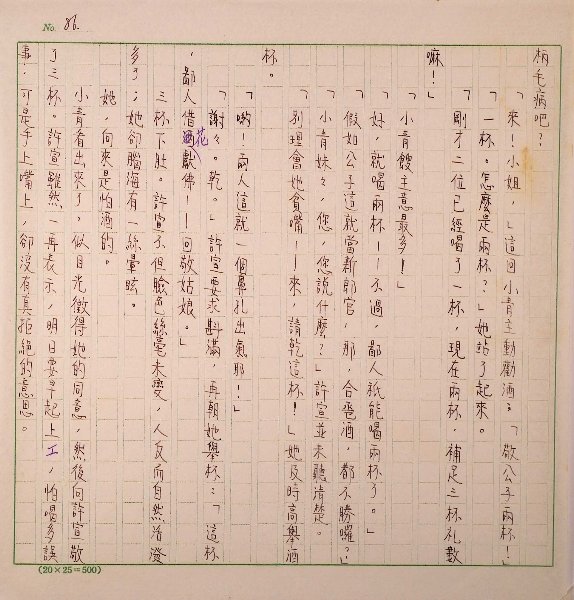 No. 86.
柄毛病吧？
「來！小姐，」這回小青主動勸酒：「敬公子兩杯！」
「一杯。怎麼是兩杯？」她站了起來。
「剛才二位已經喝了一杯，現在兩杯，補足三杯礼數
嘛！」
「小青餿主意最多！」
「好，就喝兩杯——不過，鄙人祇能喝兩杯了。」
「假如公子這就當新郎官，那，合卺酒，都不勝囉？」
「小青妹々，您，您說什麼？」許宣並未聽清楚。
「別理會她貪嘴——來，請乾這杯！」她及時高舉酒
杯。
「喲！兩人這就一個鼻孔出氣耶！」
「謝々。乾。」許宣要求斟滿，再朝她舉杯：「這杯
，鄙人借花獻佛——回敬姑娘。」
三杯下肚。許宣不但臉色絲毫未變，人反而自然活潑
多了；她卻腦海有一絲暈眩。
她，向來是怕酒的。
小青看出來了，似目光徵得她的同意，然後向許宣敬
了三杯。許宣雖然一再表示，明日要早起上工，怕喝多誤
事，可是手上嘴上，卻沒有真拒絕的意思。
(20×25=500)